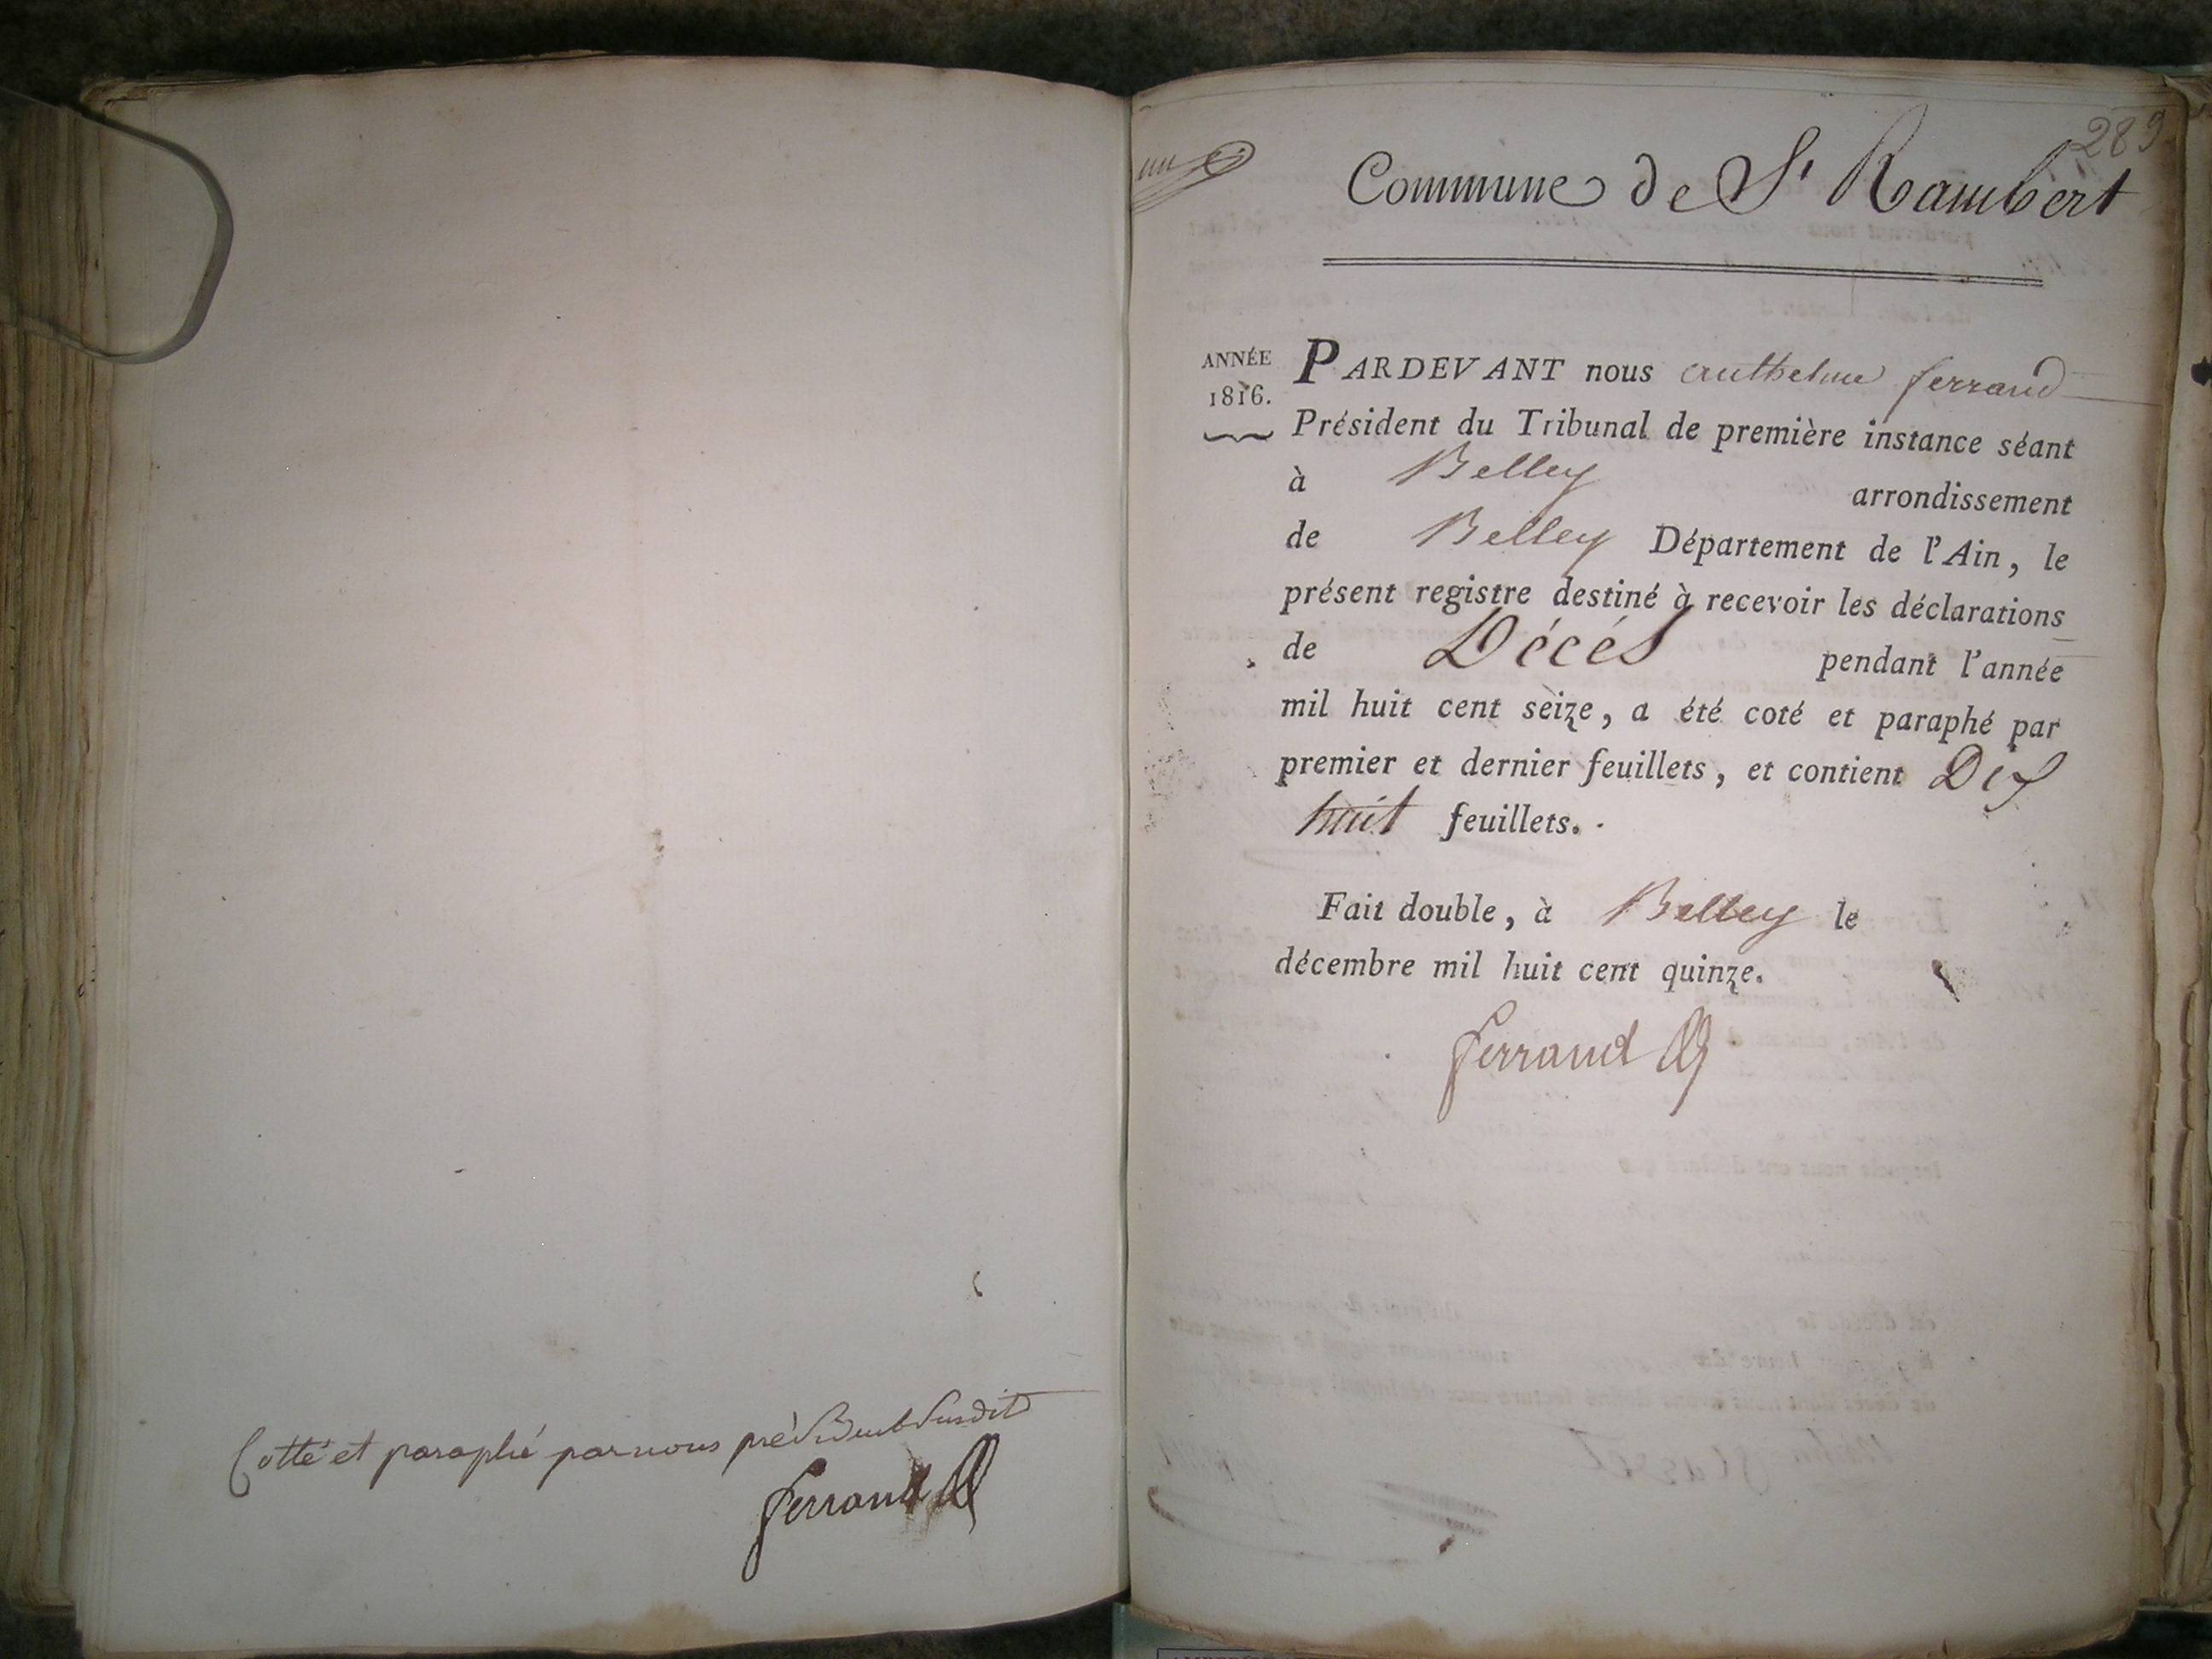 Cotté et paraphé par nous président susdit
Ferrand
un
289
Commune de St Rambert
ANNÉE
1816.
PARDEVANT nous Anthelme ferrand
Président du Tribunal de première instance séant
à Belley arrondissement
de Belley Département de l'Ain, le
présent registre destiné à recevoir les déclarations
de Décés pendant l'année
mil huit cent seize, a été coté et paraphé par
premier et dernier feuillets, et contient Dix
huit feuillets.
Fait double, à Belley le
décembre mil huit cent quinze.
Ferrand